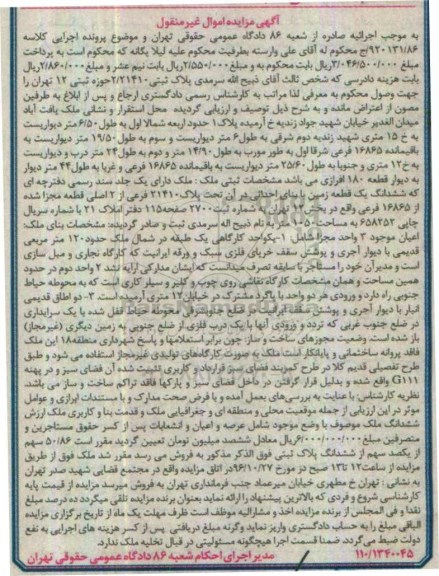 آگهی مزایده اموال غیرمنقول
به موجب اجرائیه صادره از شعبه ۸۶ دادگاه عمومی حقوقی تهران و موضوع پرونده اجرایی کلاسه
۹۲۰۱۳۱/۸۶/ج محکوم له آقای علی وارسته بطرفیت محکوم علیه لیلا یگانه که محکوم است به پرداخت
مبلغ ۳/۰۴۶/۵۰۰/۰۰۰ ریال بابت محکوم به و مبلغ ۲/۵۵۰/۰۰۰ ریال بابت نیم عشر و مبلغ ۲/۸۶۰/۰۰۰ ریال
بابت هزینه دادرسی که شخص ثالث آقای ذبیح الله سرمدی پلاک ثبتی ۲/۲۱۴۱۰ حوزه ثبتی ۱۲ تهران را
جهت وصول محکوم به معرفی لذا مراتب به کارشناس رسمی دادگستری ارجاع و پس از ابلاغ به طرفین
مصون از اعتراض مانده و به شرح ذیل توصیف و ارزیابی گردیده محل استقرار و نشانی ملک یافت آباد
میدان الغدیر خیابان شهید جواد زندیه خ آرمیده پلاک ۱ حدود اربعه شمالا اول به طول ۶/۵۰ متر دیواریست
به خ ۱۵ متری شهید زندیه دوم شرقی به طول ۶ متر دیواریست و سوم به طول ۱۹/۵۰ متر دیواریست به
باقیمانده ۱۶۸۶۵ فرعی شرقا اول به طور مورب به طول ۱۴/۹۰ متر و دوم به طول ۲۴ متر درب و دیواریست
به خ ۱۲ متری و جنوبا به طول ۲۵/۶۰ متر دیواریست به باقیمانده ۱۶۸۶۵ فرعی و غربا به طول ۴۴ متر دیوار
به دیوار قطعه ۱۸۰ افرازی می باشد مشخصات ثبتی ملک : ملک دارای یک جلد سند رسمی دفترچه ای
که ششدانگ یک قطعه زمین با بنای احداثی در آن تحت پلاک ۲۱۴۱۰ فرعی از ۲ اصلی قطعه مجزا شده
از ۱۶۸۶۵ فرعی واقع در بخش ۱۲ تهران به شماره ثبت ۲۷۰۰ صفحه ۱۱۵ دفتر املاک ۲۱ با شماره سریال
چاپی ۶۵۸۳۵۲ به مساحت ۱۰۵۰ متر به نام ذبیح اله سرمدی ثبت و صادر گردیده: مشخصات بنای ملک
اعیان موجود ۳ واحد مجزا شامل: ۱- یکواحد کارگاهی یک طبقه در شمال ملک حدود ۱۲۰ متر مربعی
قدیمی با دیوار آجری و پوشش سقف خرپای فلزی سبک و ورقه ایرانیت که کارگاه نجاری و مبل سازی
است و مدیران خود را مستاجر با سابقه تصرف میدانست که ایشان مدارکی ارایه نشد ۲ واحد دوم در حدود
همین مساحت و همان مشخصات کارگاه نقاشی روی چوب و کلیر و سیلر کاری است که به محوطه حیاط
جنوبی راه دارد و ورودی هر دو واحد با پاگرد مشترک در خیابان ۱۲ متری آرمیده است. ۳- دو اطاق قدیمی
انبار با دیوار آجری و پوشش سقف ایرانیت در ضلع جنوب شرقی محوطه حیاط قفل شده با یک سرایداری
در ضلع جنوب غربی که تردد و ورودی آنها با یک درب فلزی از ضلع جنوبی به زمین دیگری (غیرمجاز)
باز شده است. وضعیت مجوزهای ساخت و ساز: چون برابر استعلامها و پاسخ شهرداری منطقه ۱۸ این ملک
فاقد پروانه ساختمانی و پایانکار است ملک به صورت کارگاههای تولیدی غیرمجاز استفاده می شود و طبق
طرح تفصیلی قدیم کلا در طرح کمربند فضای سبز قرار دارد و کاربری تثبیت شده آن فضای سبز و در پهنه
G111 واقع شده و بدلیل قرار گرفتن در داخل فضای سبز و پارکها فاقد تراکم ساخت و ساز می باشد
نظریه کارشناس: با عنایت به بررسی‌های بعمل آمده و با فرض صحت مدارک و با مستندات ابرازی و عوامل
موثر در این ارزیابی از جمله موقعیت محلی و منطقه ای و جغرافیایی ملک و قدمت بنا و کاربری ملک ارزش
ششدانگ ملک موصوف با وضع موجود شامل عرصه و اعیان و انشعابات پس از کسر حقوق مستاجرین و
متصرفین مبلغ ۶/۰۰۰/۰۰۰/۰۰۰ ریال معادل ششصد میلیون تومان تعیین گردید مقرر است ۵۰/۸۶ سهم
از یکصد سهم از ششدانگ پلاک ثبتی فوق الذکر مذکور به فروش می رسد مقرر شد ملک فوق از طریق
مزایده از ساعت ۱۲ تا ۱۳ صبح در مورخ ۹۶/۱۰/۲۷ در اتاق مزایده واقع در مجتمع قضایی شهید صدر تهران
به نشانی: تهران خ مطهری خیابان میرعماد جنب فرمانداری تهران به فروش میرسد مزایده از قیمت پایه
کارشناسی شروع و فردی که بالاترین پیشنهاد را ارائه نماید بعنوان برنده مزایده تلقی میگردد ده درصد مبلغ
نقدا و فی المجلس از برنده مزایده اخذ و مشارالیه موظف است ظرف مهلت یک ماه از تاریخ برگزاری مزایده
الباقی مبلغ را به حساب دادگستری واریز نماید وگرنه مبلغ دریافتی پس از کسر هزینه های اجرایی به نفع
دولت ضبط می گردد. ضمنا قسمت اجرا هیچگونه مسئولیتی در قبال تخلیه ملک ندارد.
۱۱۰/۱۳۴۰۰۴۵ مدیر اجرای احکام شعبه ۸۶ دادگاه عمومی حقوقی تهران